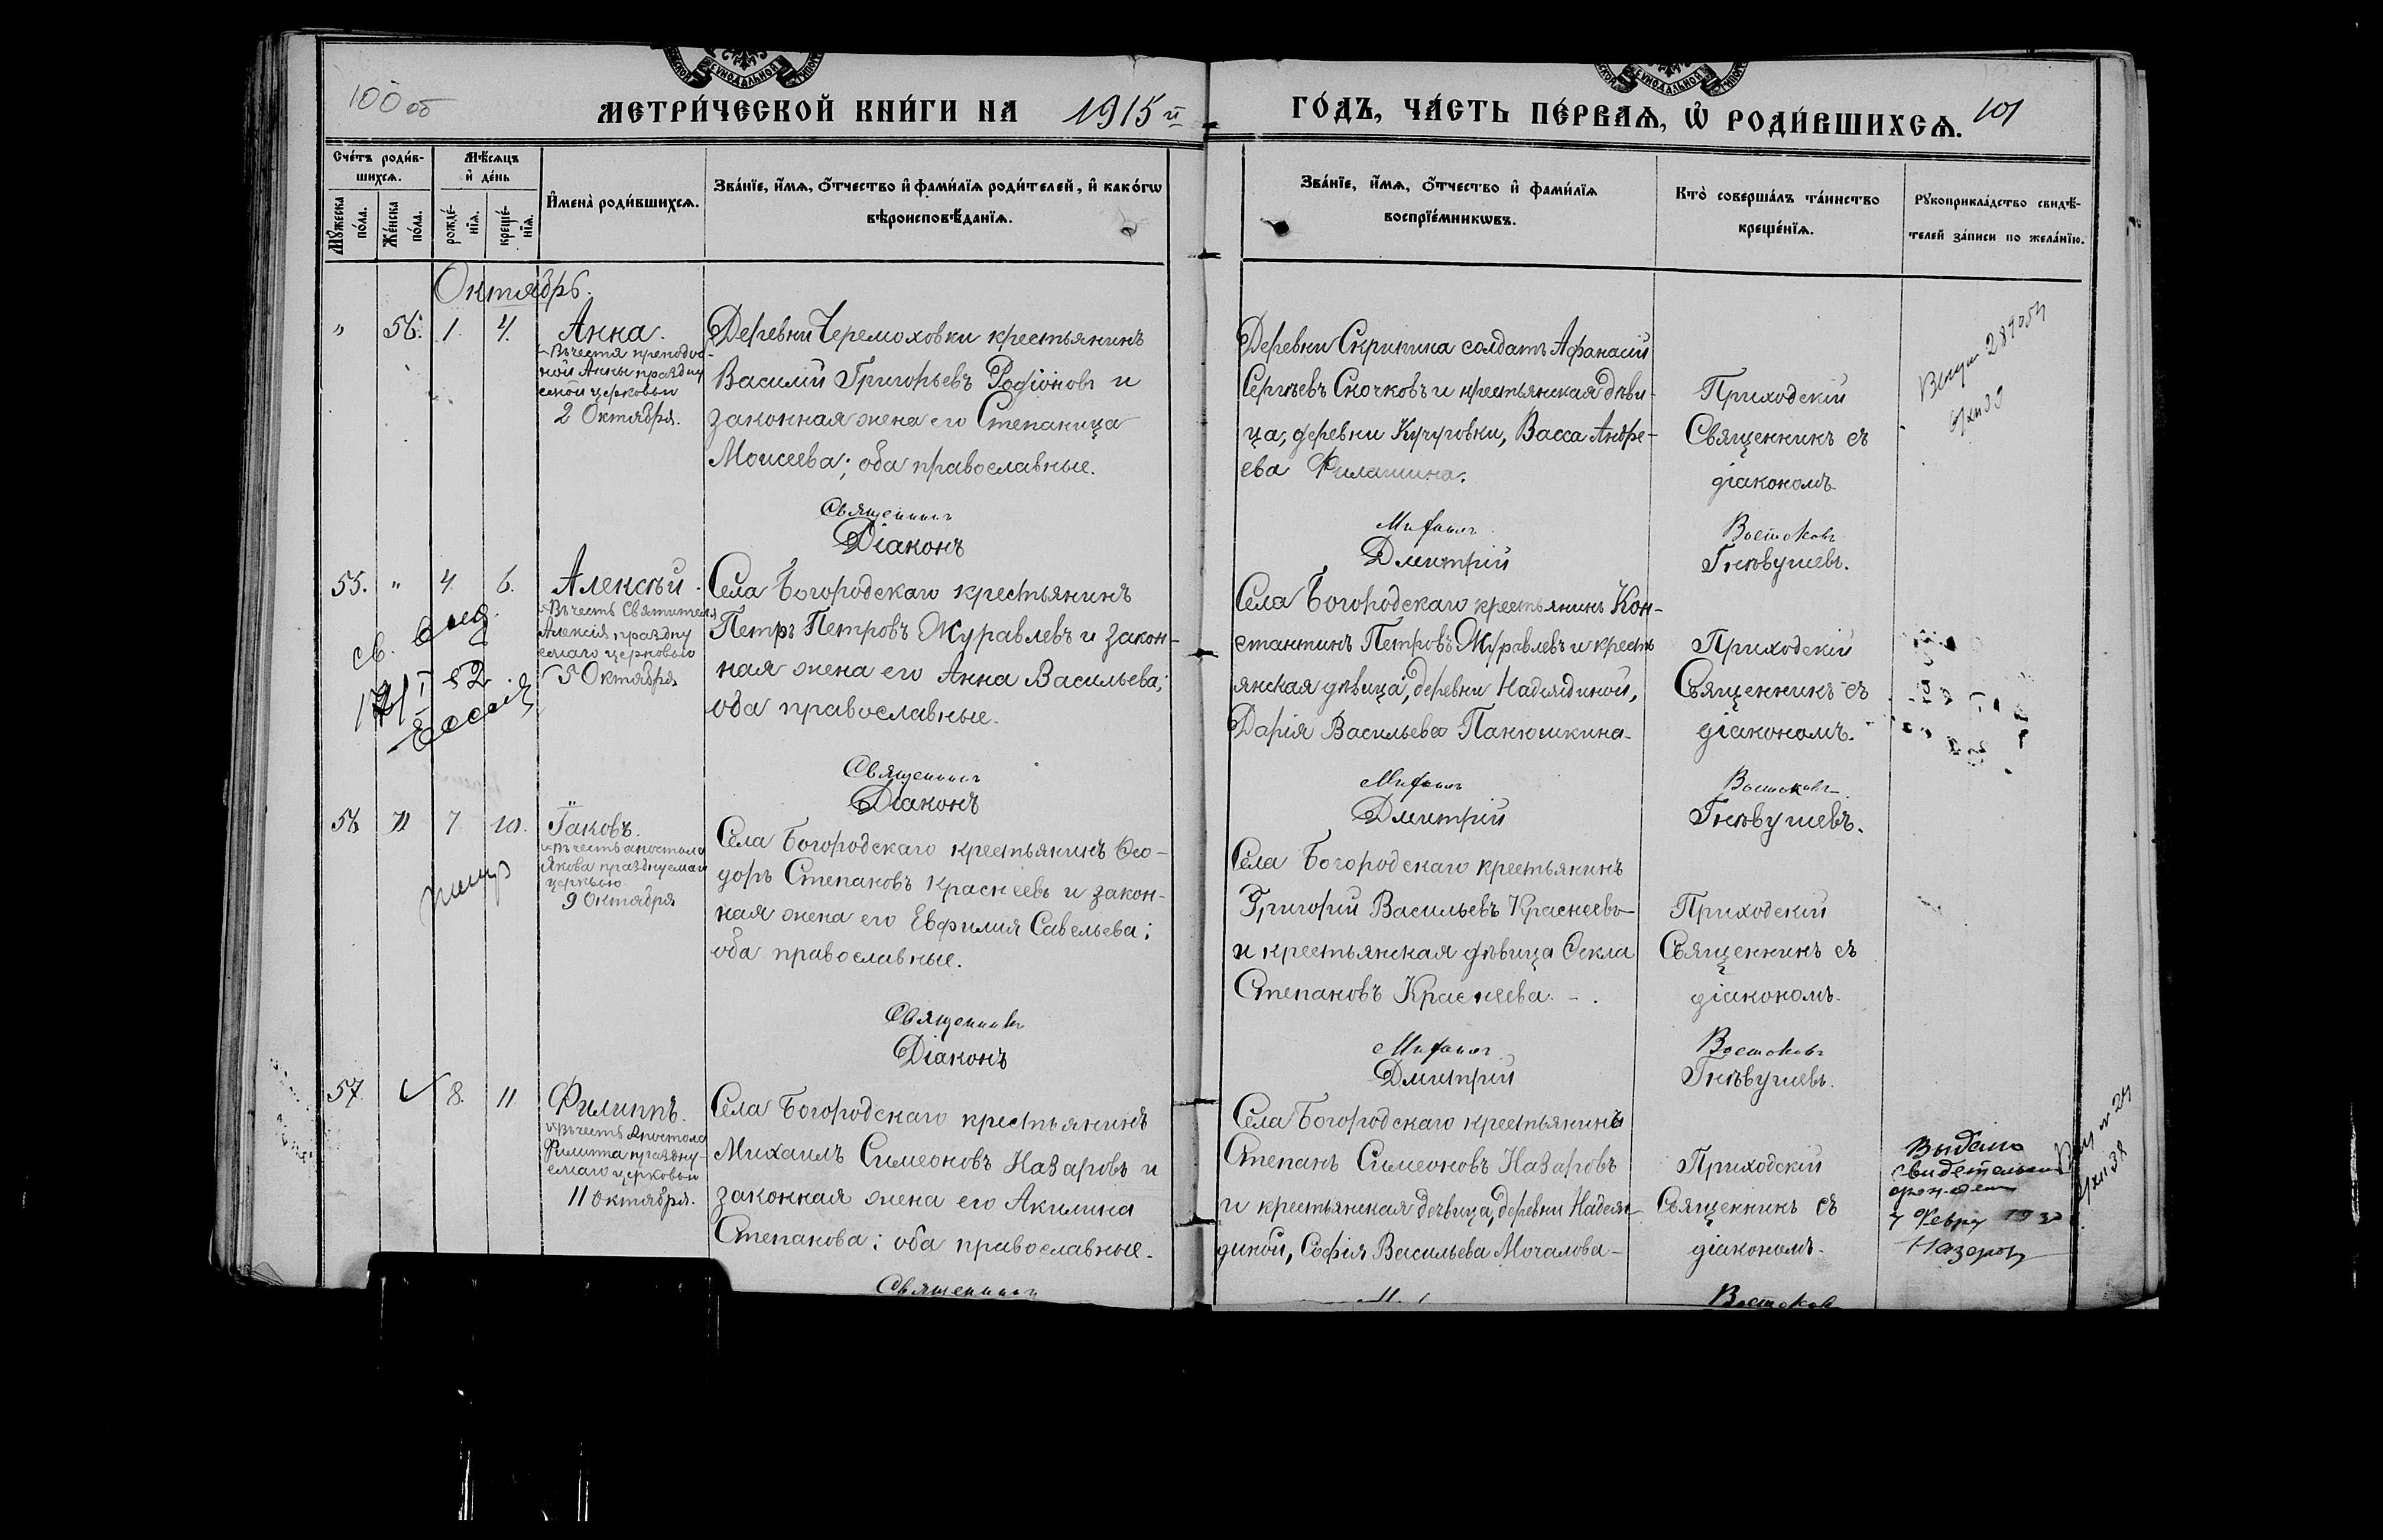 100 об
МЕТРИ́ЧЕСКОЙ КНИ́ГИ НА 1915 й
ГО́ДЪ, ЧА́СТЬ ПЕ́РВАѦ, Ѡ РОДИ́ВШИХСѦ.
101
Сче́тъ роди́в-
шихсѧ.
Мѣ́сѧцъ
и҆ де́нь
Мꙋ́жеска
по́ла.
Же́нска
по́ла.
рожде́-
нїѧ.
креще́-
нїѧ.
И҆мена̀ роди́вшихсѧ.
Зва́нїе, и҆́мѧ, ѻ҆́тчество и҆ фами́лїѧ роди́телей, и҆ како́гѡ
вѣроисповѣ́данїѧ.
Зва́нїе, и҆́мѧ, ѻ҆́тчество и҆ фами́лїѧ
воспрїе́мникѡвъ.
Кто̀ соверша́лъ та́инство
креще́нїѧ.
Рꙋкоприкла́дство свидѣ́-
телей за́писи по жела́нїю.
Октябрь.
" 56. 1. 4. Анна.
Въ честь преподоб-
ной Анны праздну
емой церковью
2 Октября.
Деревни Черемоховки крестьянинъ
Василій Григорьевъ Родіоновъ и
законная жена его Степанида
Моисеева; оба православные.
Деревни Скрипина солдатъ Афанасій
Сергѣевъ Скочковъ и крестьянская дѣви-
ца, деревни Кучуровки, Васса Андре-
ева Филашина.
Приходскій
Священникъ съ
діакономъ.
Священникъ Митрофанъ Востоковъ
Діаконъ Дмитрій Гнѣвушевъ.
55. " 4. 6. Алексѣй.
Въ честь Святителя
Алексія праздну
емаго церковью
5 Октября
Села Богородскаго крестьянинъ
Петръ Петровъ Журавлевъ и закон-
ная жена его Анна Васильева;
оба православные.
Села Богородскаго крестьянинъ Кон-
стантинъ Петровъ Журавлевъ и кресть
янская дѣвица, деревни Надеждиной,
Дарія Васильева Панюшкина
Приходскій
Священникъ съ
діакономъ.
Священникъ Востоковъ
Діаконъ Дмитрій Гнѣвушевъ.
56 " 7 10. Іаковъ.
Въ честь апостола
Якова празднуемаго
церковью
9 Октября
Села Богородскаго крестьянинъ Ѳео-
доръ Степановъ Краснеевъ и закон-
ная жена его Евфимія Савельева;
оба православные.
Села Богородскаго крестьянинъ
Григорій Васильевъ Краснеевъ
и крестьянская дѣвица Ѳекла
Степановъ Краснеева.
Приходскій
Священникъ съ
діакономъ.
Священникъ Востоковъ
Діаконъ Дмитрій Гнѣвушевъ.
57. 8. 11. Филиппъ.
Въ честь Апостола
Филиппа праздну-
емаго церковью
11 Октября.
Села Богородскаго крестьянинъ
Михаилъ Симеоновъ Назаровъ и
законная жена его Акилина
Степанова; оба православные.
Села Богородскаго крестьянинъ
Степанъ Симеоновъ Назаровъ
и крестьянская дѣвица, деревни Надеж-
диной, Софія Васильева Мочалова
Приходскій
Священникъ съ
діакономъ.
Выдано
свидетельство
о рожден
7 Февр 193
Назаров
Священникъ Востоковъ